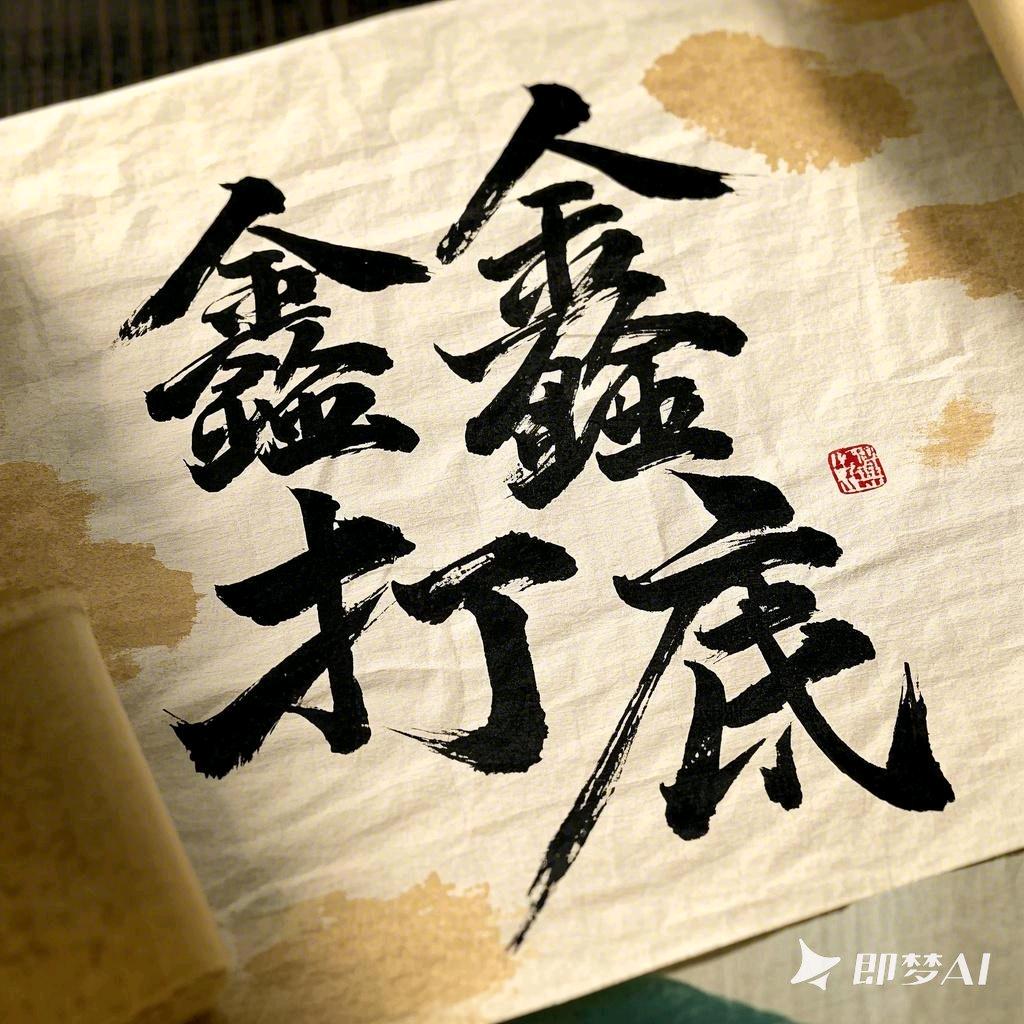 鑫鑫
打底
即梦AI